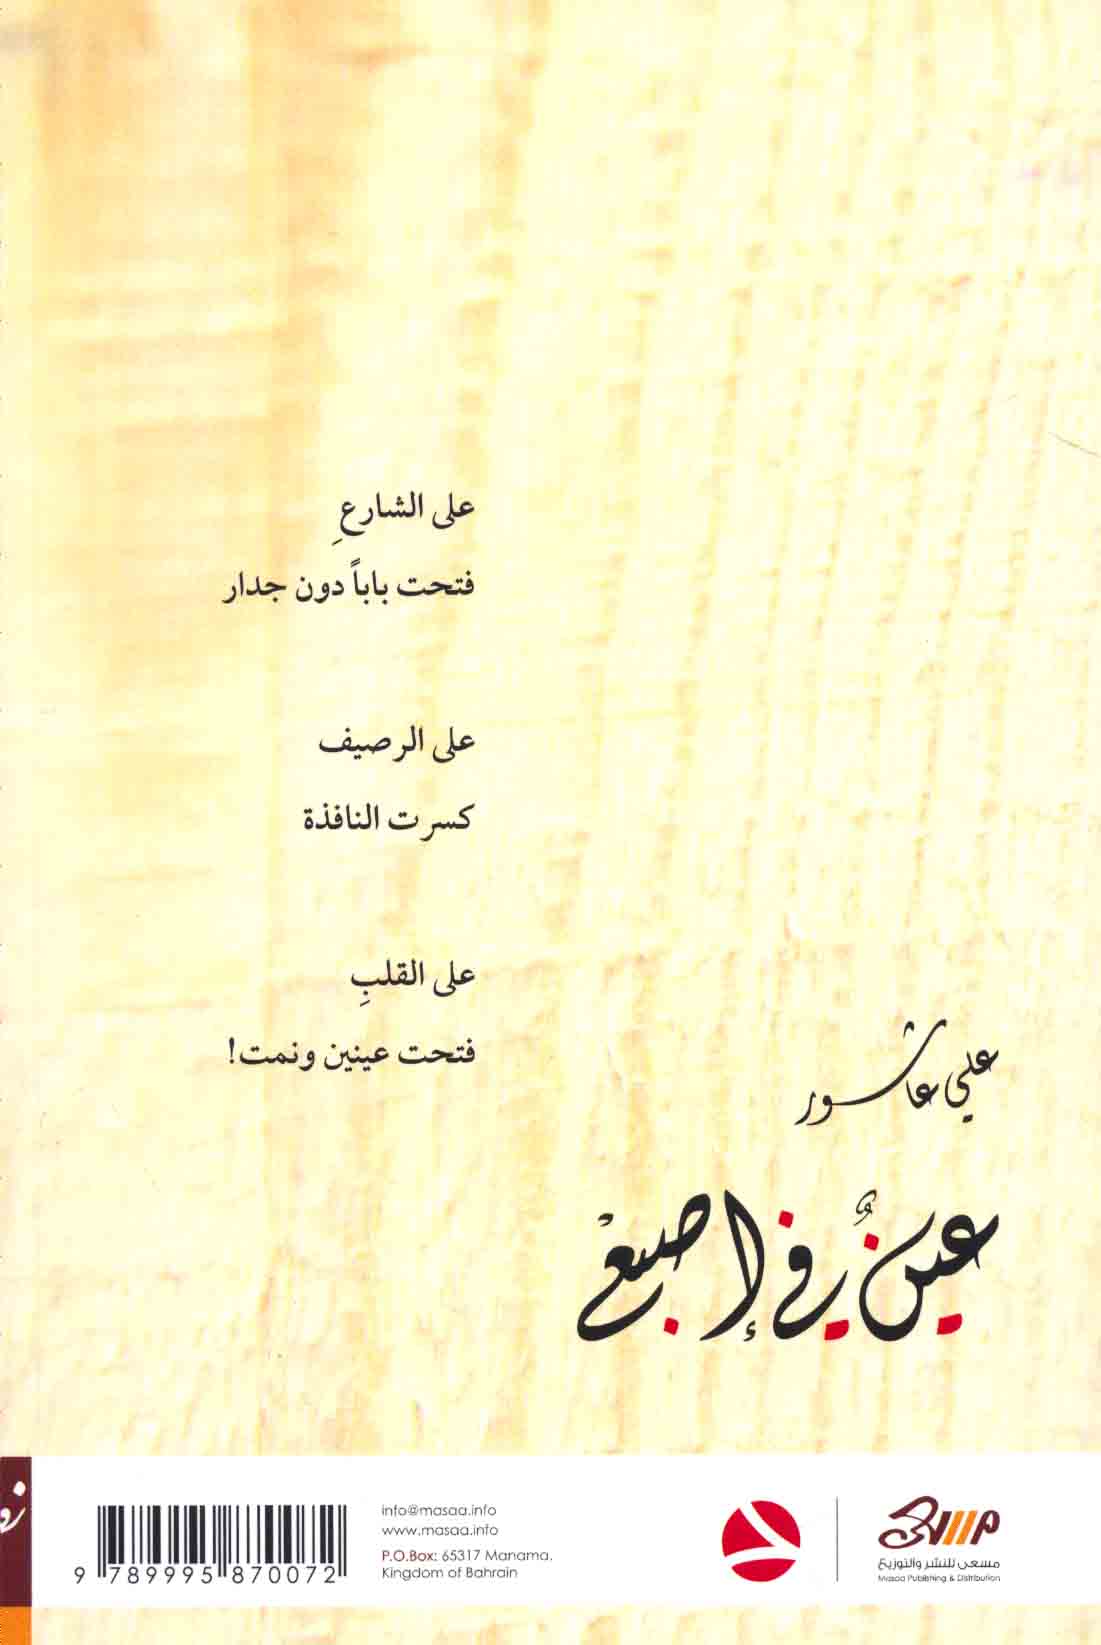 على الشارعِ
فتحت باباً دون جدار
على الرصيف
كسرت النافذة
على القلبِ
فتحت عينين ونمت!
علي عاشور
عينٌ في إصبعْ
info@masaa.info
www.masaa.info
P.O.Box: 65317 Manama,
Kingdom of Bahrain
9 789995 870072
مسعى
مسعى للنشر والتوزيع
Masaa Publishing & Distribution